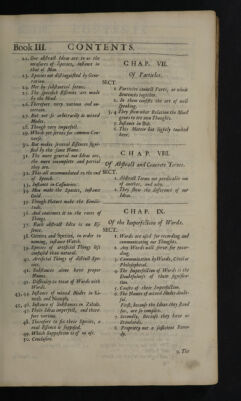 Book III. CONTENTS.
22. Our abstract Ideas are to us the
measures of Species, instance in
that of Man.
23. Species not distinguished by Gene-
ration.
24. Not by substantial forms.
25. The specifick Essences are made
by the Mind.
26. Therefore very various and un-
certain.
27. But not so arbitrarily as mixed
Modes.
28. Though very imperfect.
29. Which yet serves for common Con-
verse.
30. But makes several Essences signi-
fied by the same Name.
31. The more general our Ideas are,
the more incomplete and partial
they are.
32. This all accommodated to the end
of Speech.
33. Instance in Cassuaries.
34. Men make the Species, instance
Gold.
35. Though Nature make the Simili-
tude.
36. And continues it in the races of
Things.
37. Each abstract Idea is an Es-
sence.
38. Genera and Species, in order to
naming, instance Watch.
39. Species of artificial Things less
confused than natural.
40. Artificial Things of distinct Spe-
cies.
41. Substances alone have proper
Names.
42. Difficulty to treat of Words with
Words.
43, 44. Instance of mixed Modes in Ki-
neah and Niouph.
45, 46. Instance of Substances in Zahab.
47. Their Ideas imperfect, and there-
fore various.
48. Therefore to fix their Species, a
real Essence is supposed.
49. Which Supposition is of no use.
50. Conclusion.
CHAP. VII.
Of Particles.
SECT.
1. Particles connect Parts, or whole
Sentences together.
2. In them consists the art of well
speaking.
3, 4. They shew what Relation the Mind
gives to its own Thoughts.
5. Instance in But.
6. This Matter but lightly touched
here.
CHAP. VIII.
Of Abstract and Concrete Terms.
SECT.
1. Abstract Terms not predicable one
of another, and why.
2. They shew the difference of our
Ideas.
CHAP. IX.
Of the Imperfection of Words.
SECT.
1. Words are used for recording and
communicating our Thoughts.
2. Any Words will serve for recor-
ding.
3. Communication by Words, Civil or
Philosophical.
4. The Imperfection of Words is the
Doubtfulness of their Significa-
tion.
5. Causes of their Imperfection.
6. The Names of mixed Modes doubt-
ful.
First, because the Ideas they stand
for, are so complex.
7. Secondly, Because they have no
Standards.
8. Propriety not a sufficient Reme-
dy.
9. The